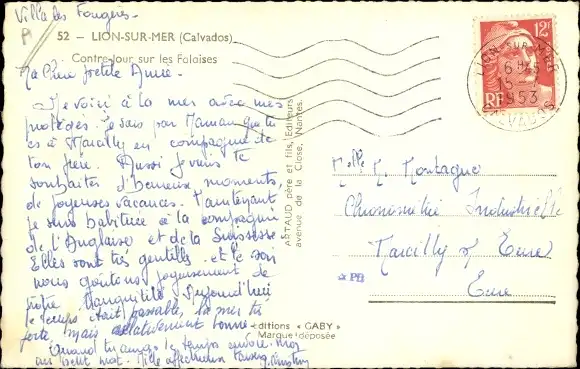 Villa les Fougères
52 — LION-SUR-MER (Calvados)
Contre-Jour sur les Falaises
Ma Chère petite Amie -
Me voici à la mer avec mes
protégés. Je sais par Maman que tu
es à Marcilly en compagnie de
ton frère. Aussi je viens te
souhaiter d'heureux moments,
de joyeuses vacances. Maintenant
je suis habituée à la compagnie
de l'Anglaise et de la Suissesse
Elles sont très gentilles - et le soir
nous goûtons joyeusement de
notre tranquillité. Aujourd'hui
le temps était passable, la mer très
forte, mais relativement bonne -
Quand tu auras le temps envoie-moi
un petit mot. Mille affectueux
ARTAUD père et fils, Editeurs
avenue de la Close, Nantes.
Editions « GABY »
Marque déposée
12F
RF
LION-SUR-MER
1953
CALVADOS
Melle M. Montagne
Chronométrie Industrielle
Marcilly s/ Eure
Eure
PB